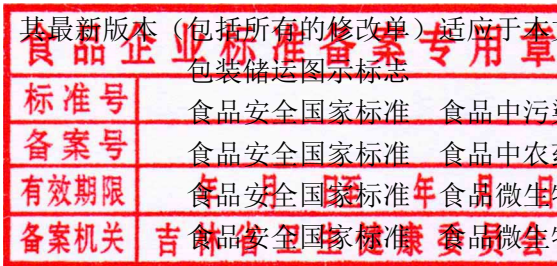 其最新版本（包括所有的修改单）适应于本
食品企业标准备案专用章
包装储运图示标志
标准号
食品安全国家标准 食品中污
备案号
食品安全国家标准 食品中农
有效期限 年 月 日至 年 月 日
食品安全国家标准 食品微生
备案机关 吉林省卫生健康委员会
食品安全国家标准 食品微生